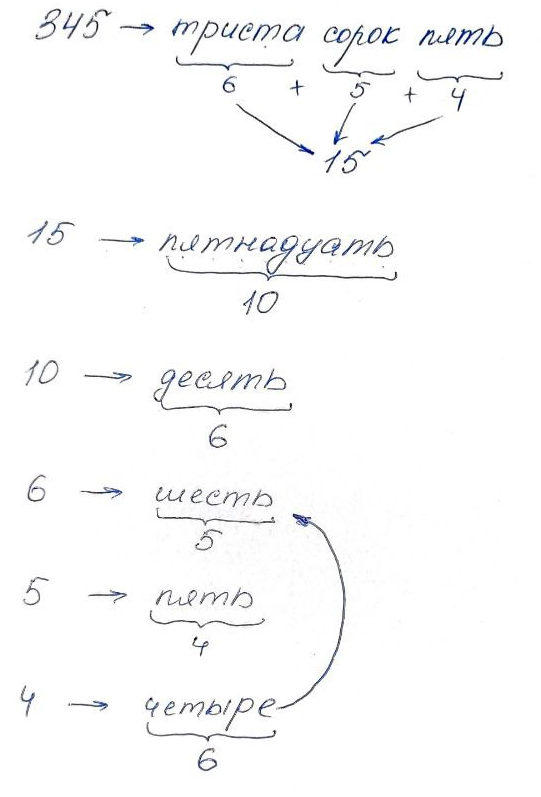 345 → триста сорок пять
6 + 5 + 4
15
15 → пятнадцать
10
10 → десять
6
6 → шесть
5
5 → пять
4
4 → четыре
6